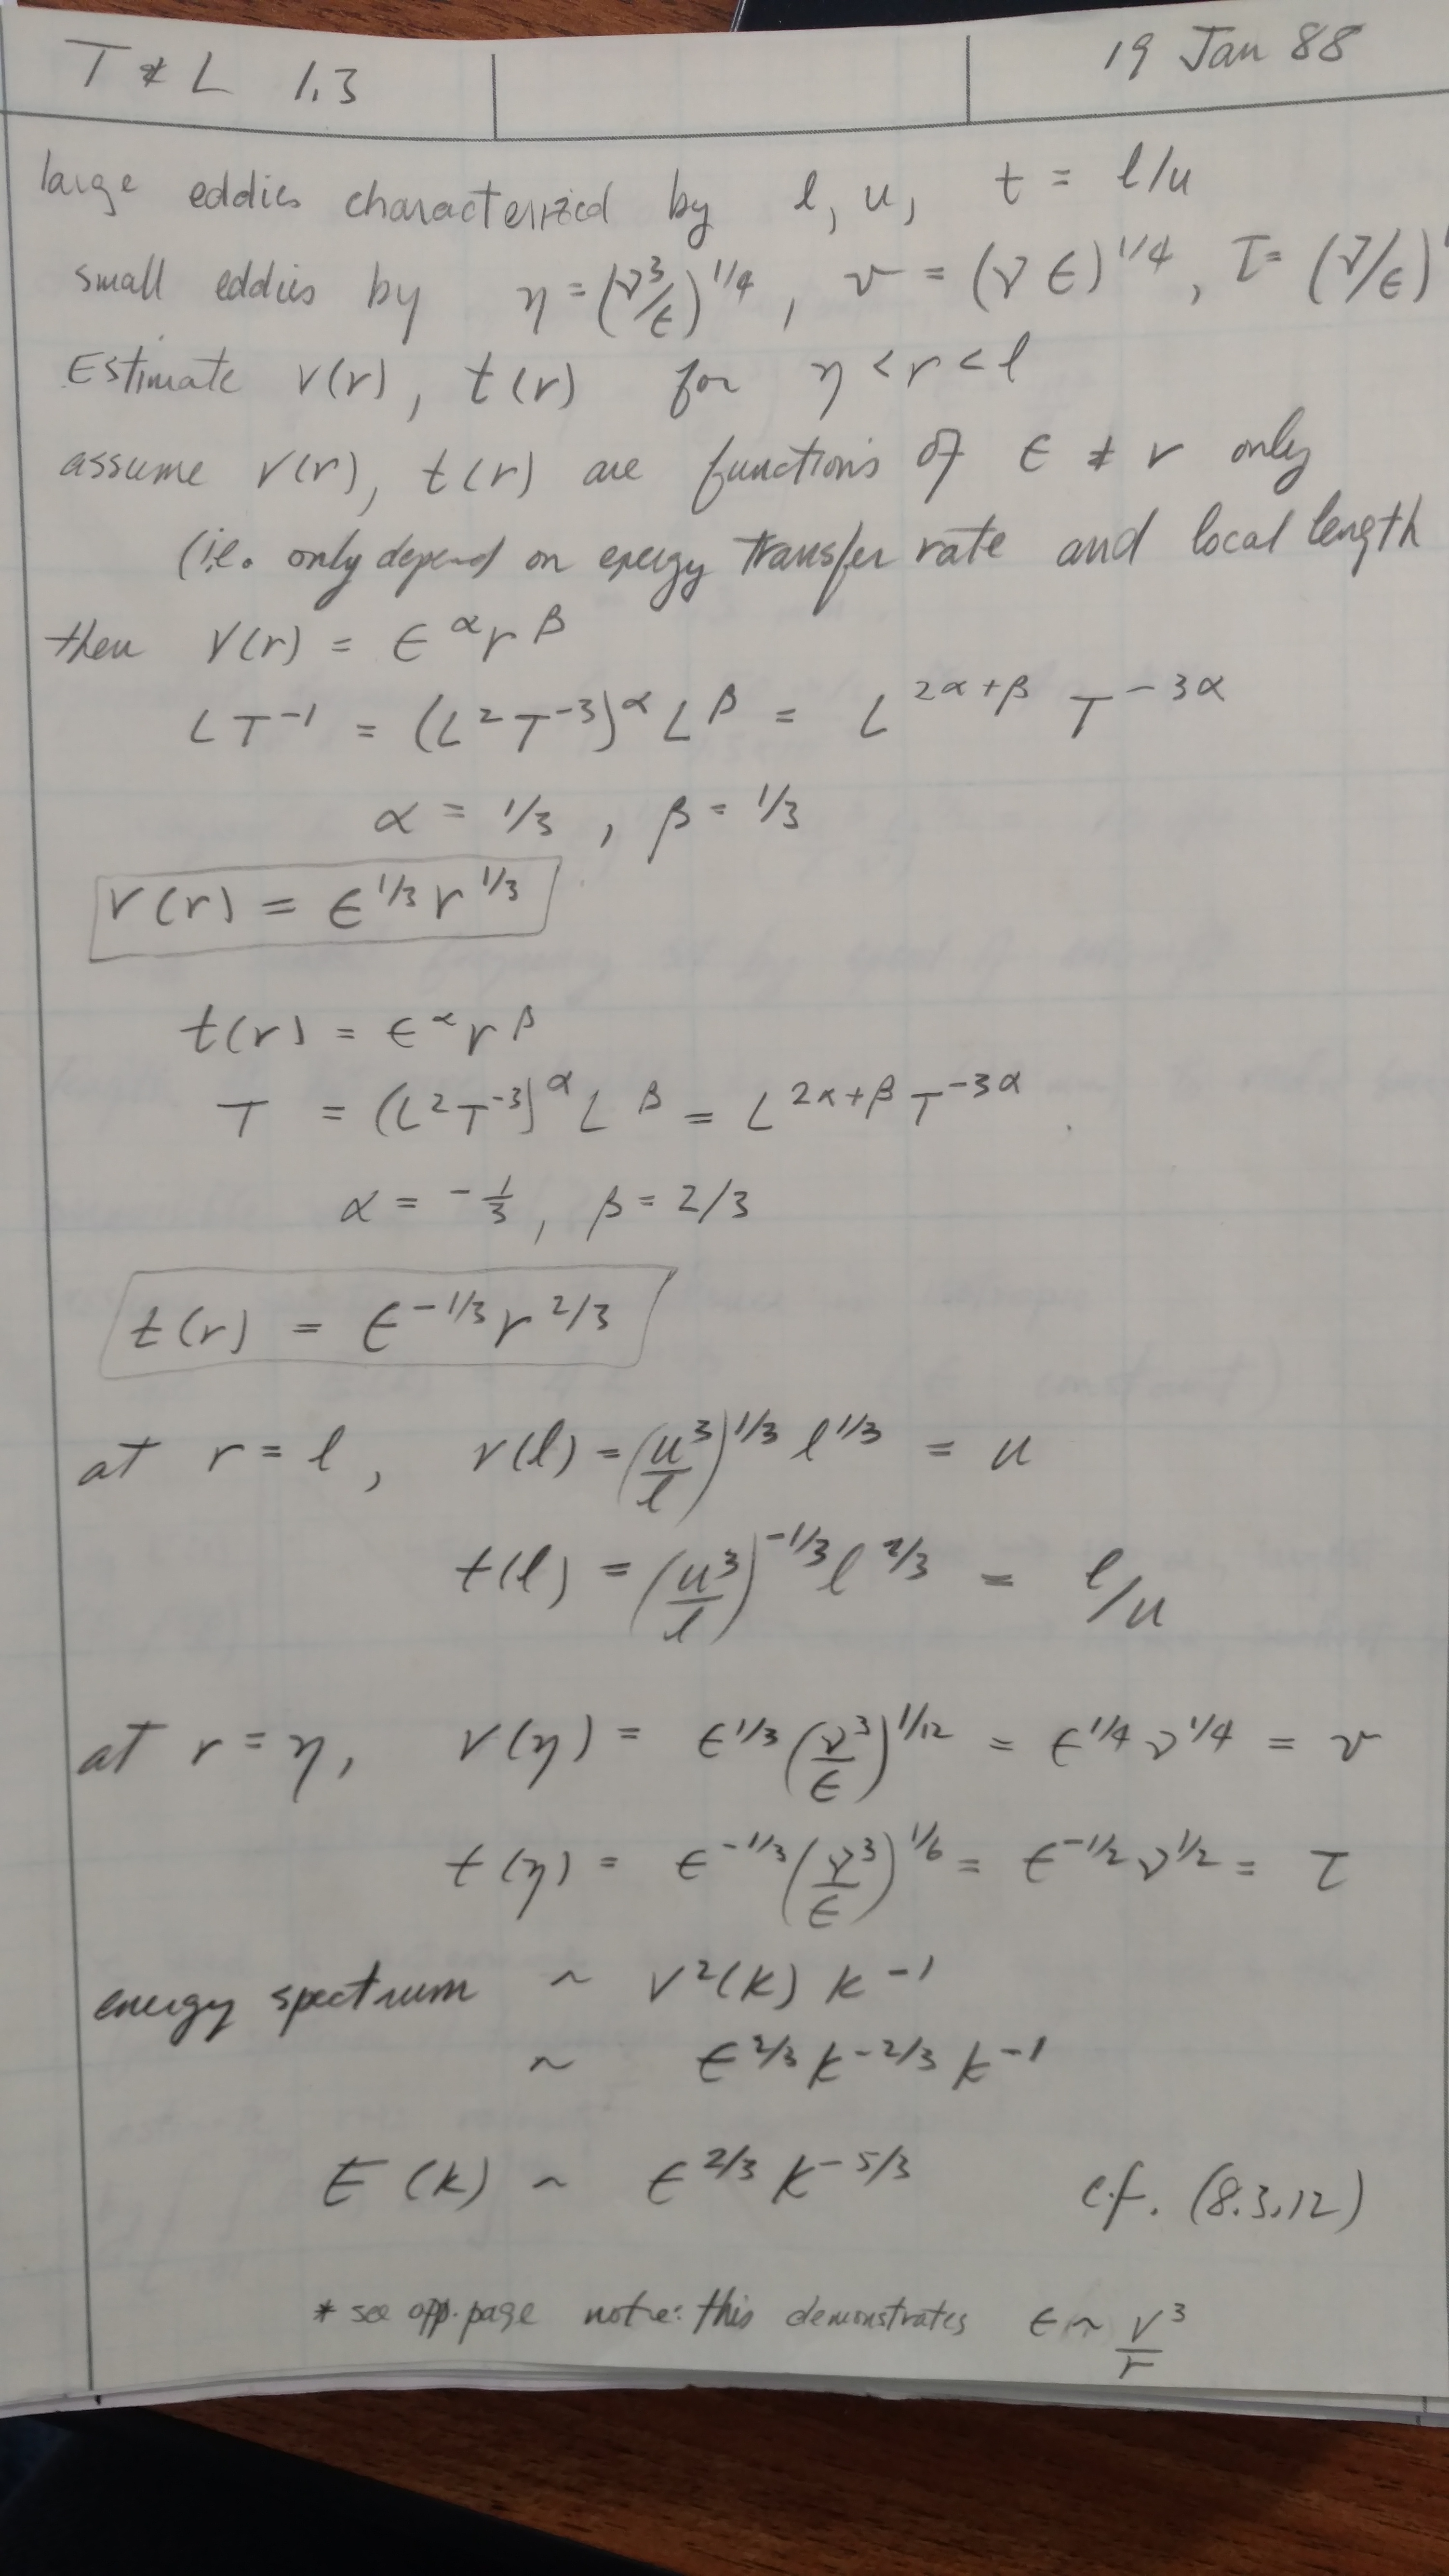 T & L 1.3
19 Jan 88
large eddies characterized by l, u, t = l/u
small eddies by η = (ν³/ε)^1/4, v = (ν ε)^1/4, τ = (ν/ε)
Estimate v(r), t(r) for η < r < l
assume v(r), t(r) are functions of ε & r only
(i.e. only depend on energy transfer rate and local length
then v(r) = ε^α r^β
L T^-1 = (L² T^-3)^α L^β = L^2α+β T^-3α
α = 1/3, β = 1/3
v(r) = ε^1/3 r^1/3
t(r) = ε^α r^β
T = (L² T^-3)^α L^β = L^2α+β T^-3α
α = -1/3, β = 2/3
t(r) = ε^-1/3 r^2/3
at r = l, v(l) = (u³/l)^1/3 l^1/3 = u
t(l) = (u³/l)^-1/3 l^2/3 = l/u
at r = η, v(η) = ε^1/3 (ν³/ε)^1/12 = ε^1/4 ν^1/4 = v
t(η) = ε^-1/3 (ν³/ε)^1/6 = ε^-1/2 ν^1/2 = τ
energy spectrum ~ v²(k) k^-1
~ ε^2/3 k^-2/3 k^-1
E(k) ~ ε^2/3 k^-5/3 cf. (8.3.12)
* see opp. page note: this demonstrates ε ~ v³/r